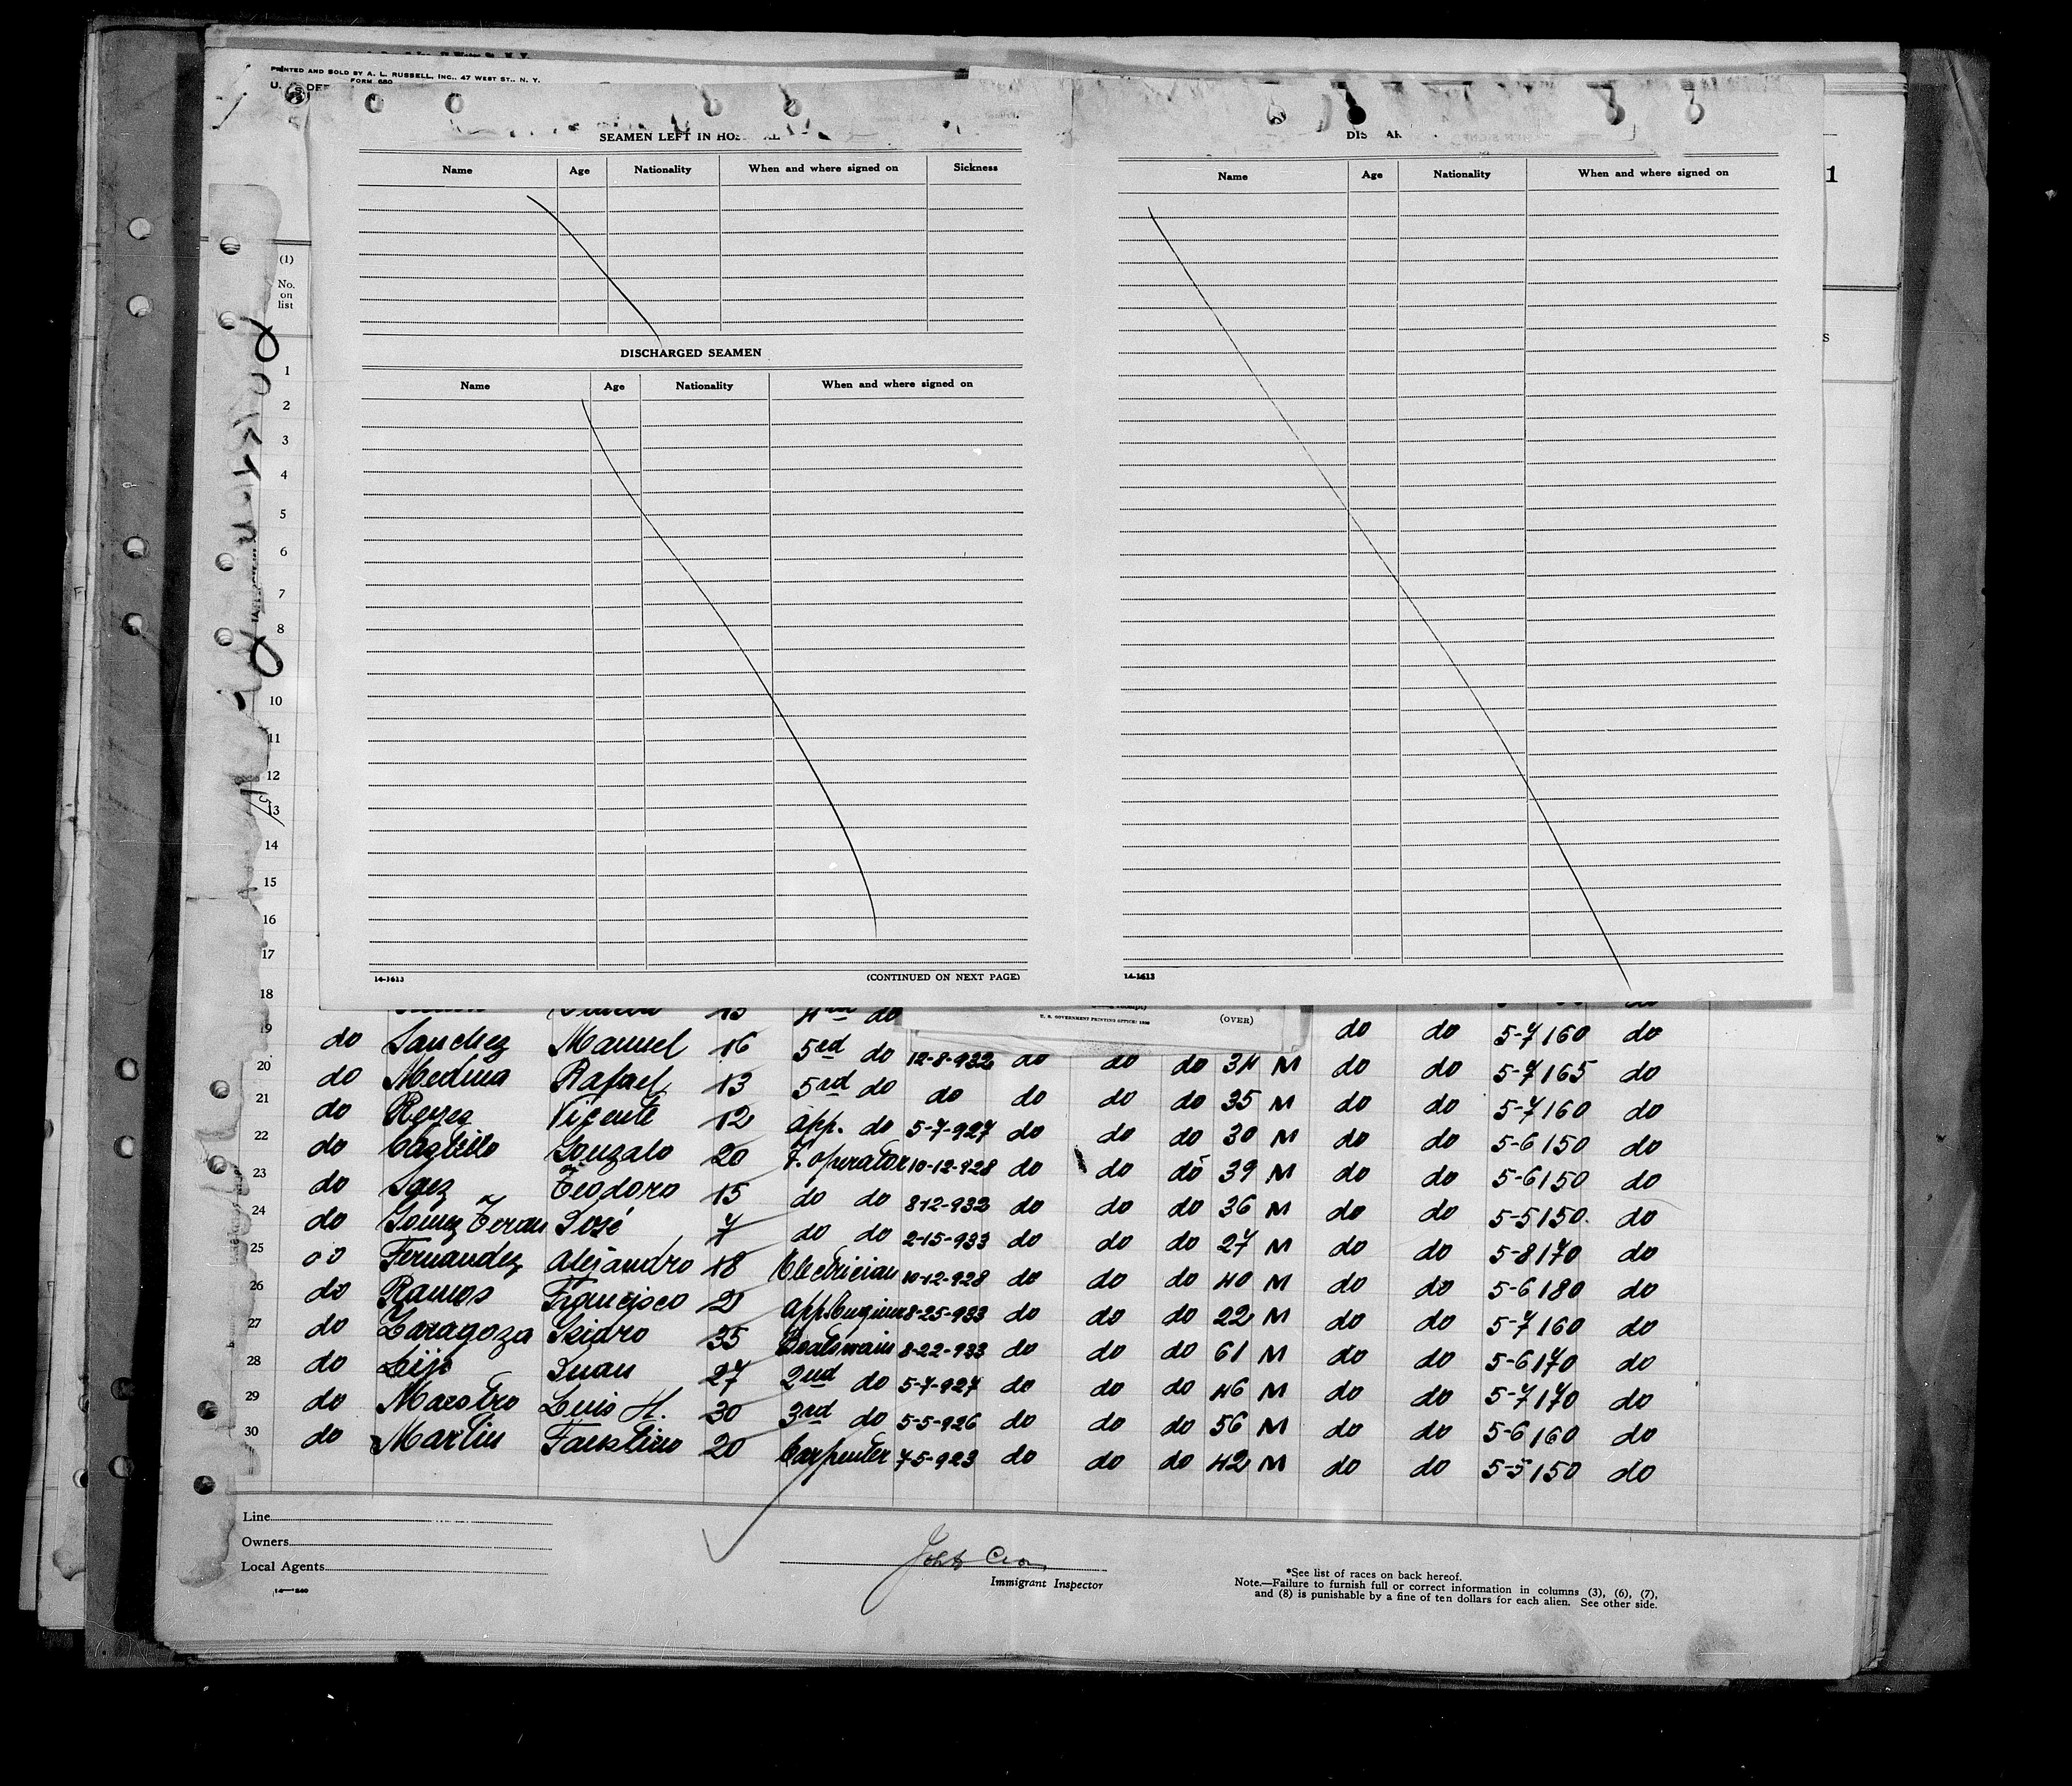 PRINTED AND SOLD BY A. L. RUSSELL, INC., 47 WEST ST., N. Y.
FORM 680
U. S. DEP
SEAMEN LEFT IN HOS AL
Name Age Nationality When and where signed on Sickness
DISCHARGED SEAMEN
Name Age Nationality When and where signed on
14-1613 (CONTINUED ON NEXT PAGE)
DIS AR
Name Age Nationality When and where signed on
14-1613
1
S
(1)
No.
on
list
1
2
3
4
5
6
7
8
10
11
12
13
14
15
16
17
18
15 4th do
U. S. GOVERNMENT PRINTING OFFICE (OVER)
19 do Sanchez Manuel 16 5rd do 12-8-932 do do do 34 M do do 5-7 160 do
20 do Medina Rafael 13 5rd do do do do do 35 M do do 5-7 165 do
21 do Reyes Vicente 12 app. do 5-7-927 do do do 30 M do do 5-7 160 do
22 do Castillo Gonzalo 20 F. operator 10-12-928 do do do 39 M do do 5-6 150 do
23 do Saez Teodoro 15 do do 8-12-932 do do do 36 M do do 5-6 150 do
24 do Gomez Teran José 7 do do 2-15-933 do do do 27 M do do 5-5 150 do
25 do Fernandez Alejandro 18 Electrician 10-12-928 do do do 40 M do do 5-8 170 do
26 do Ramos Francisco app. Engineer 8-25-933 do do do 22 M do do 5-6 180 do
27 do Zaragoza Isidro 35 Boatswain 8-22-933 do do do 61 M do do 5-7 160 do
28 do Lijo Juan 27 2nd do 5-7-927 do do do 46 M do do 5-6 170 do
29 do Maestro Luis H. 30 3rd do 5-5-926 do do do 56 M do do 5-7 170 do
30 do Martin Faustino 20 Carpenter 7-5-923 do do do 42 M do do 5-6 160 do
do do 5-5 150 do
Line
Owners
Local Agents
14-840
Immigrant Inspector
*See list of races on back hereof.
Note.—Failure to furnish full or correct information in columns (3), (6), (7),
and (8) is punishable by a fine of ten dollars for each alien. See other side.